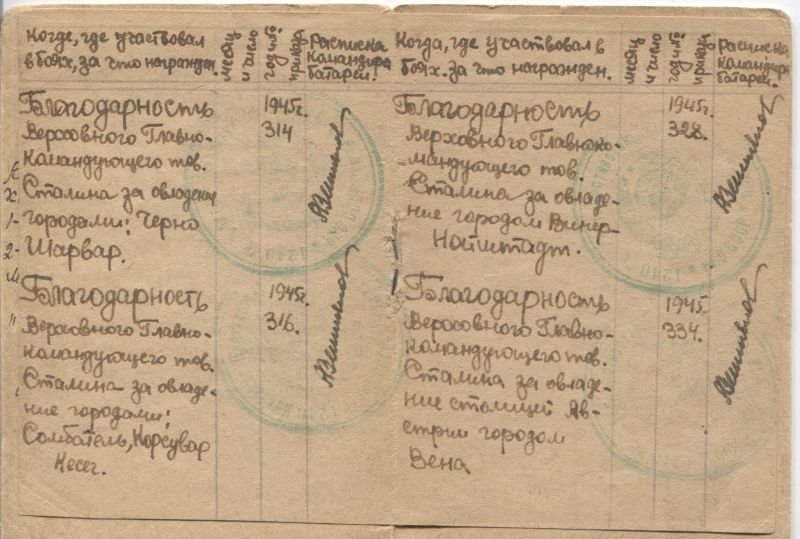 Когде, где участвовал
в боях, за что награжден.
месяц
и число
год и №
приказа
Расписка
Командира
батареи.
Благодарность
Верховного Главно-
командующего тов.
Сталина за овладение
городами: Черно
Шарвар.
1945г.
314
Благодарность
Верховного Главно-
командующего тов.
Сталина за овладе-
ние городами:
Сомбатель, Корсувар
Кесег.
1945г.
316.
Когда, где участвовал в
боях. за что награжден.
месяц
и число
год и №
приказа
Расписка
Командира
батареи.
Благодарность
Верховного Главноко-
мандующего тов.
Сталина за овладе-
ние городом Винер-
Нойштадт.
1945г.
328.
Благодарность
Верховного Главно-
командующего тов.
Сталина за овладе-
ние столицей Ав-
стрии городом
Вена
1945
334.